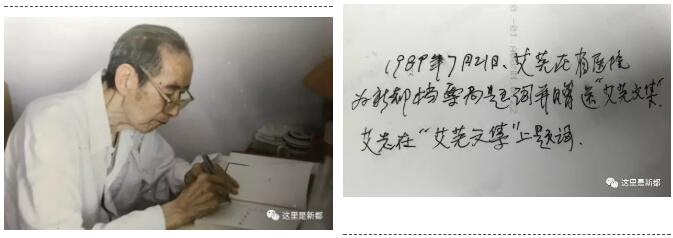 这里是新都
1989年7月21日、艾芜在省医院
为新都档案局题词并赠送“艾芜文集”.
艾芜在“艾芜文集”上题词.
这里是新都